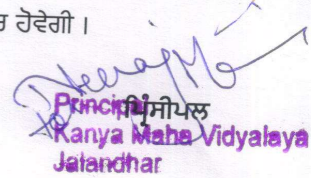 ਹੋਵੇਗੀ ।
Principal
ਪ੍ਰਿੰਸੀਪਲ
Kanya Maha Vidyalaya
Jalandhar